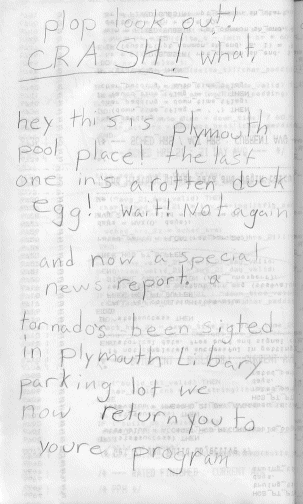 plop look out!
CRASH! what,
hey this is plymouth
pool place! the last
one in's a rotten duck
egg! Wait! Not again
and now a special
news report. a
tornado's been sigted
in plymouth Library
parking lot we
now return you to
youre program